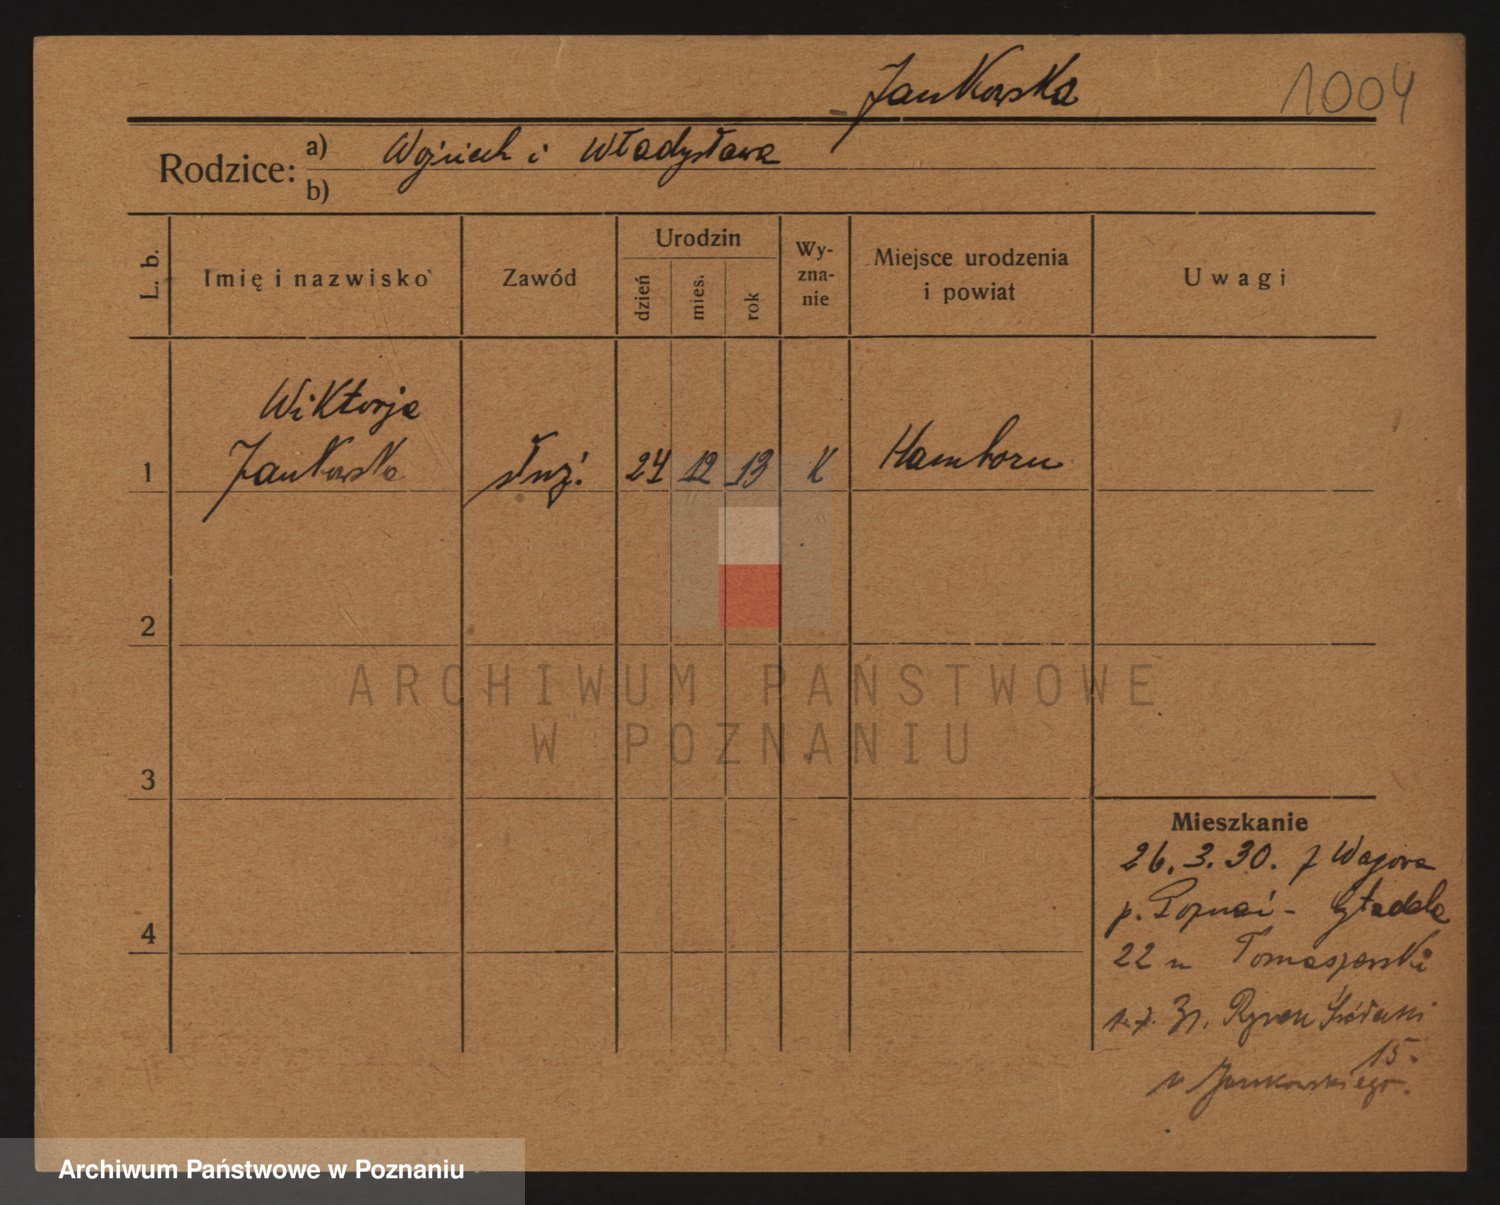 Jankowska
1004
Rodzice: a) Wojciech i Władysława
b)
L. b.
Imię i nazwisko
Zawód
Urodzin
dzień
mies.
rok
Wy-
zna-
nie
Miejsce urodzenia
i powiat
Uwagi
Wiktorja
1 Jankowska służ. 24 12 13 K Hamborn
2
ARCHIWUM PAŃSTWOWE
W POZNANIU
3
4
Mieszkanie
26. 3. 30.
p. Poznań -
22 u Tomaszewski
1.7. 31. Rynek Śródecki
15.
u Jankowskiego.
Archiwum Państwowe w Poznaniu